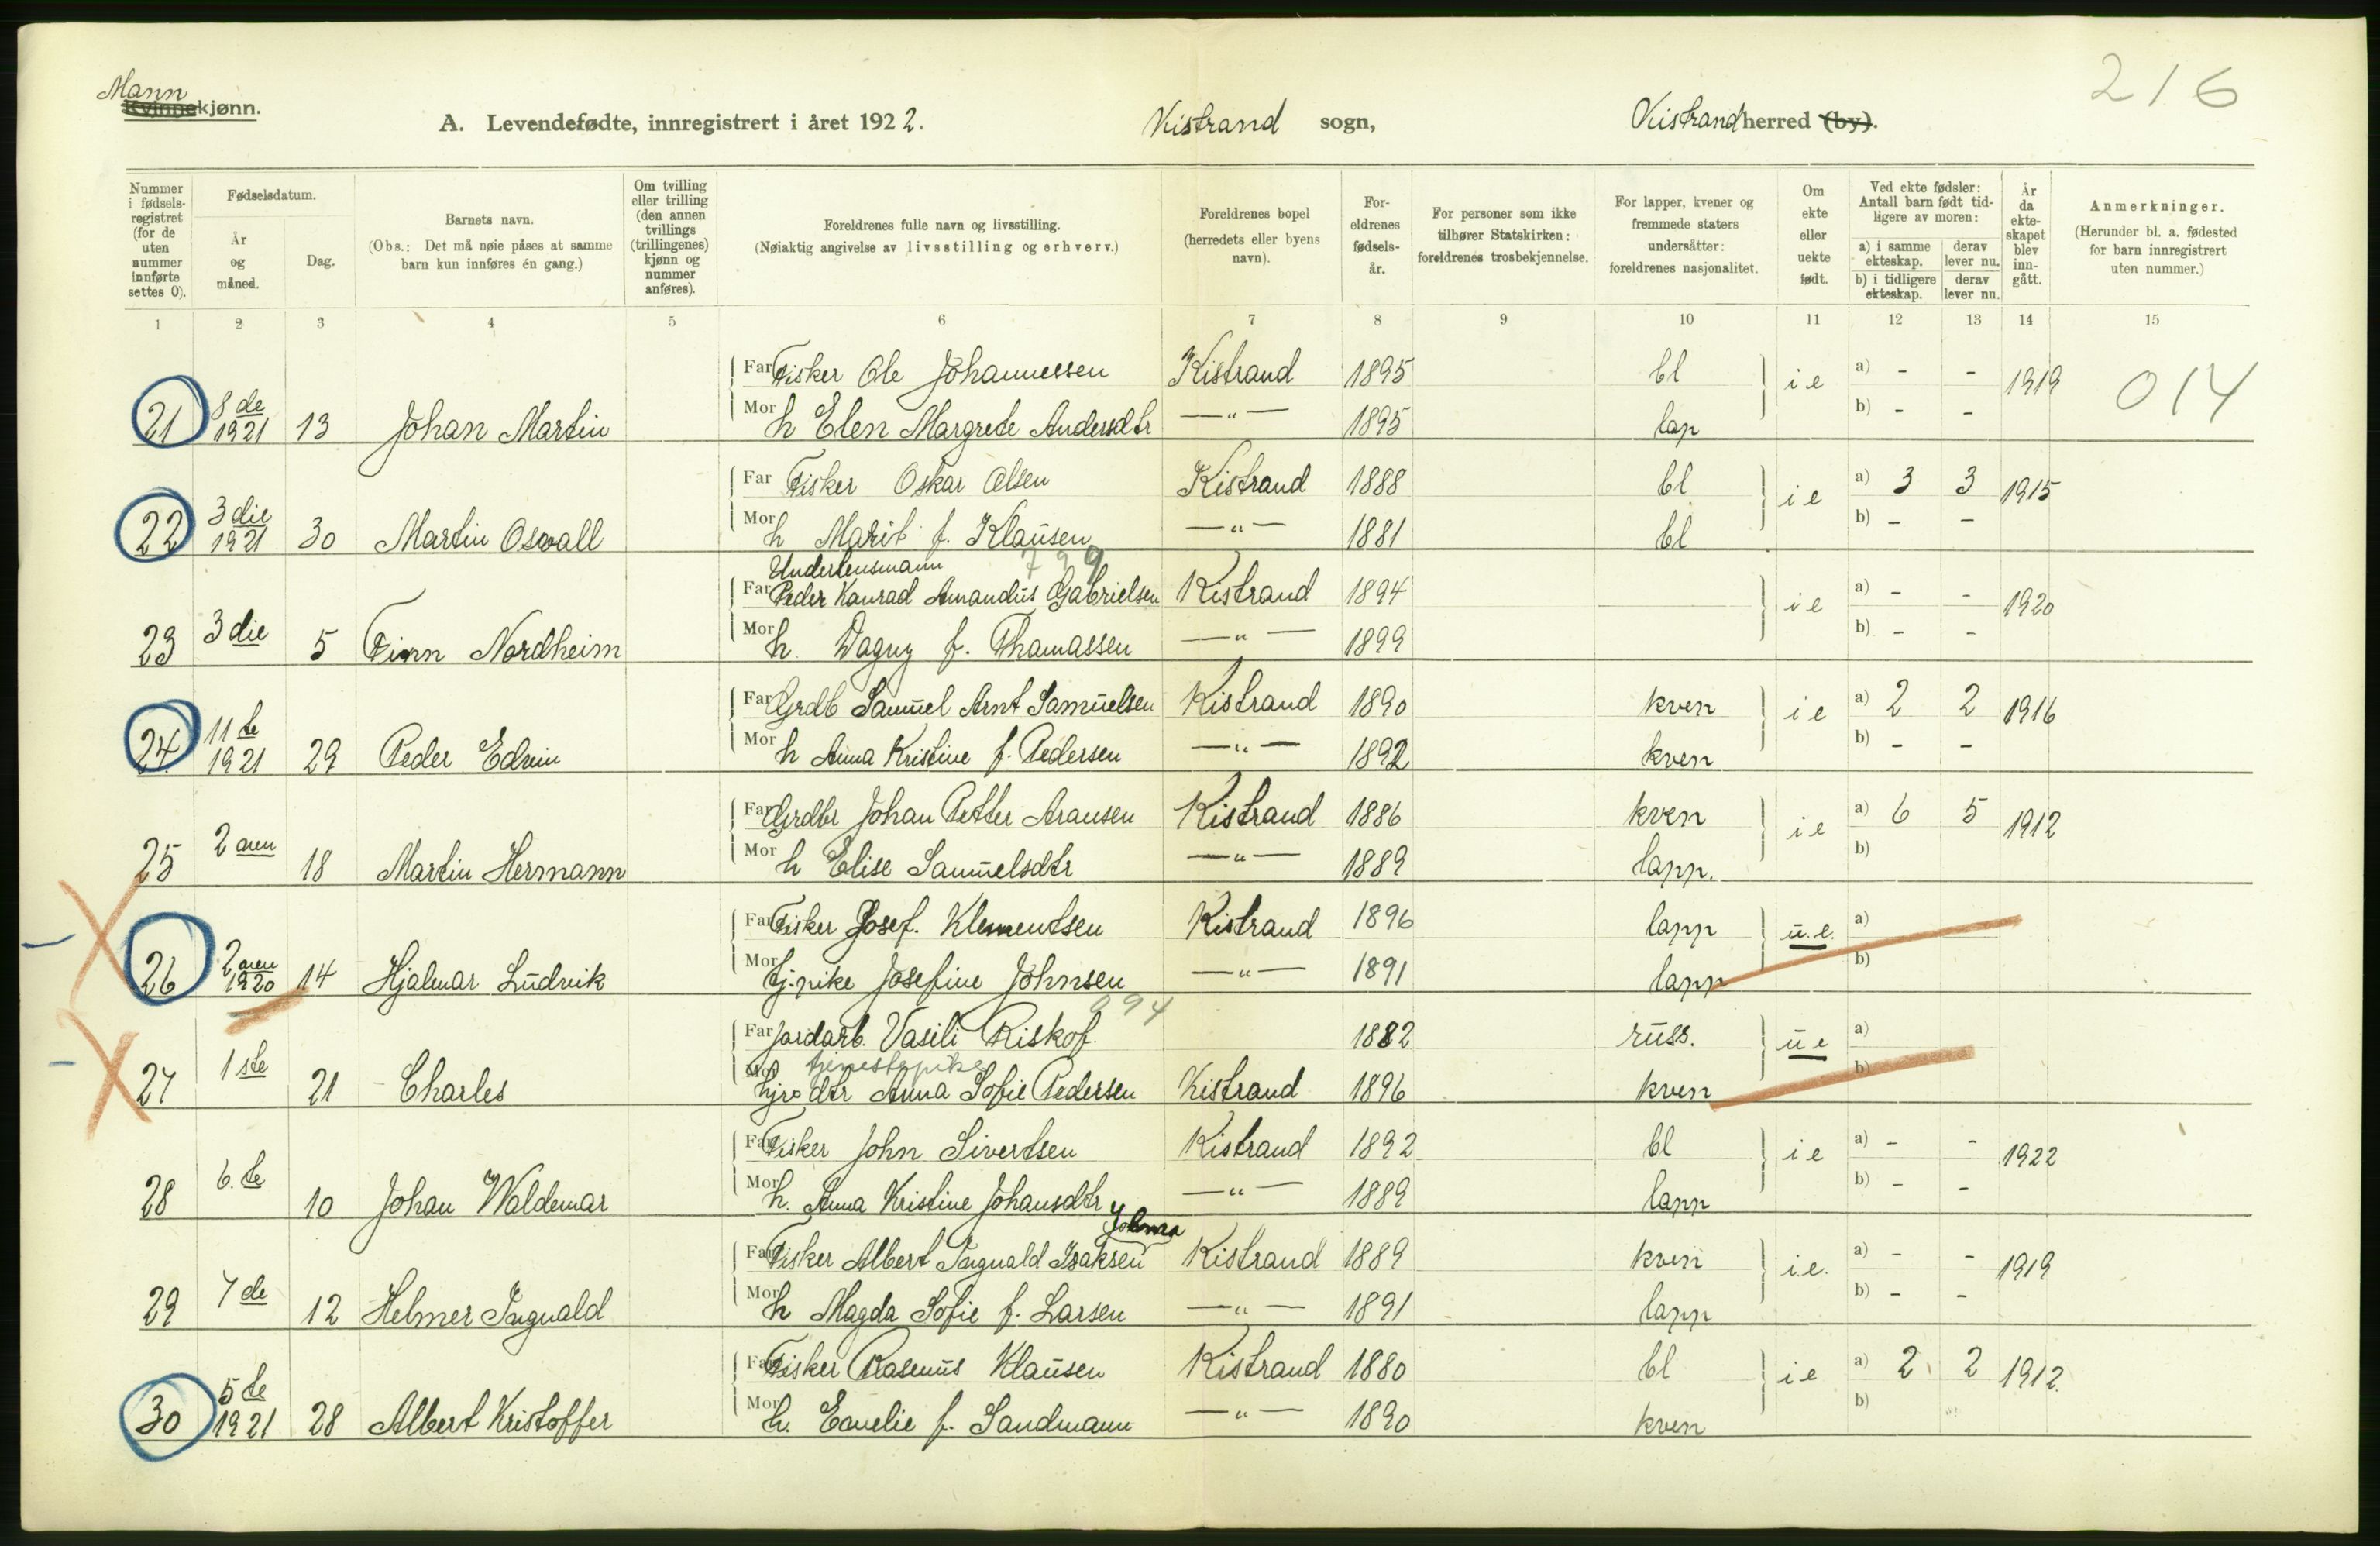 216
Mann
Kvinnekjønn.
A. Levendefødte, innregistrert i året 1922. Kistrand sogn, Kistrand herred (by).
Nummer i fødselsregistret (for de uten nummer innførte settes 0). Fødselsdatum. År og måned. Dag. Barnets navn. (Obs.: Det må nøie påses at samme barn kun innføres én gang.) Om tvilling eller trilling (den annen tvillings (trillingenes) kjønn og nummer anføres). Foreldrenes fulle navn og livsstilling. (Nøiaktig angivelse av livsstilling og erhverv.) Foreldrenes bopel (herredets eller byens navn). Foreldrenes fødselsår. For personer som ikke tilhører Statskirken: foreldrenes trosbekjennelse. For lapper, kvener og fremmede staters undersåtter: foreldrenes nasjonalitet. Om ekte eller uekte født. Ved ekte fødsler: Antall barn født tidligere av moren: a) i samme ekteskap. derav lever nu. b) i tidligere ekteskap. derav lever nu. År da ekteskapet blev inngått. Anmerkninger. (Herunder bl. a. fødested for barn innregistrert uten nummer.)
1 2 3 4 5 6 7 8 9 10 11 12 13 14 15
Far Fisker Ole Johannessen Kistrand 1895 bl i e a) - - 1919 014
21 8de 1921 13 Johan Martin Mor h Elen Margrete Andersdtr —"— 1895 lap b) - -
Far Fisker Oskar Olsen Kistrand 1888 bl i e a) 3 3 1915
22 3die 1921 30 Martin Osvall Mor h Marit f. Klausen —"— 1881 bl b) - -
Underlensmann 799
Far Peder Konrad Amandus Gabrielsen Kistrand 1894 i e a) - - 1920
23 3die 5 Finn Nordheim Mor h. Dagny f. Thomassen —"— 1899 b) - -
Far Grdb Samuel Arnt Samuelsen Kistrand 1890 kven i e a) 2 2 1916
24 11te 1921 29 Peder Edvin Mor h Anna Kristine f. Pedersen —"— 1892 kven b) - -
Far Grdbr Johan Petter Aransen Kistrand 1886 kven i e a) 6 5 1912
25 2anen 18 Martin Hermann Mor h Elise Samuelsdtr —"— 1889 lapp. b)
Far Fisker Josef. Klementsen Kistrand 1896 lapp u.e. a)
26 2anen 1920 14 Hjalmar Ludvik Mor tj.pike Josefine Johnsen —"— 1891 lapp b)
994
Far Jordarb. Vasili Riskof. 1882 russ. u e a)
tjenestepike
27 1ste 21 Charles Mor dtr Anna Sofie Pedersen Kistrand 1896 kven b)
Far Fisker John Sivertsen Kistrand 1892 bl i e a) - - 1922
28 6.te 10 Johan Waldemar Mor h. Anna Kristine Johansdtr —"— 1889 lapp b) - -
Far Fisker Albert Ingvald Isaksen Kistrand 1889 kven i.e. a) - - 1919
29 7de 12 Helmer Ingvald Mor h Magda Sofie f. Larsen —"— 1891 lapp b) - -
Far Fisker Rasmus Klausen Kistrand 1880 bl i e a) 2 2 1912.
30 5te 1921 28 Albert Kristoffer Mor h. Emelie f. Sandmann —"— 1890 kven b)